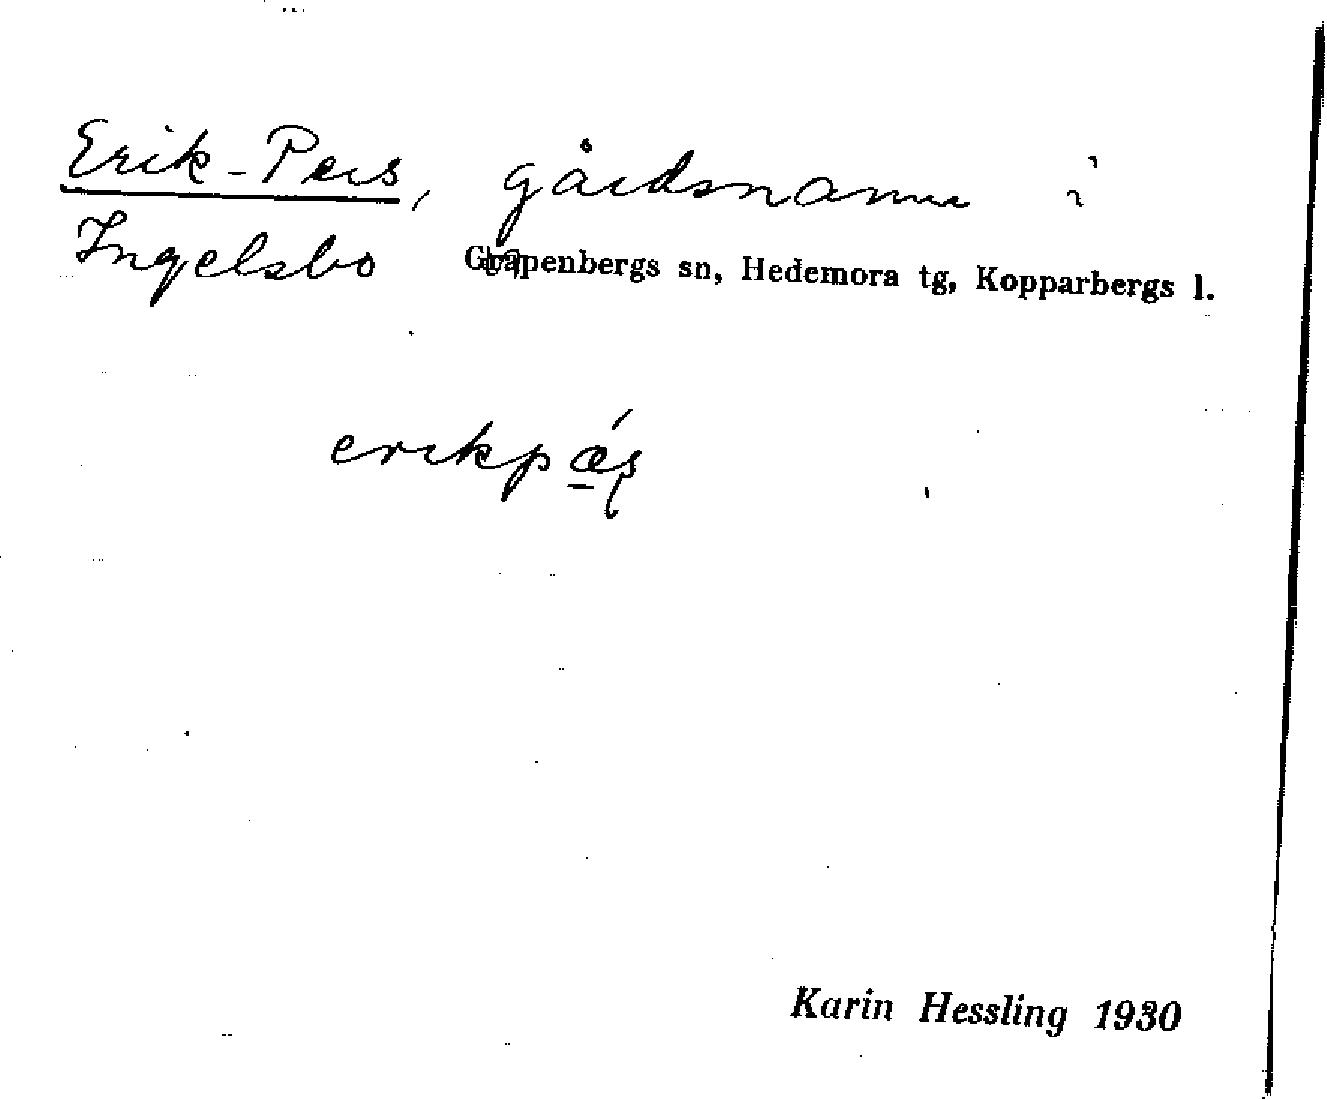 Erik-Pers, gårdsnamn i
Ingelsbo Grapenbergs sn, Hedemora tg, Kopparbergs l.
erikpǽș
Karin Hessling 1930